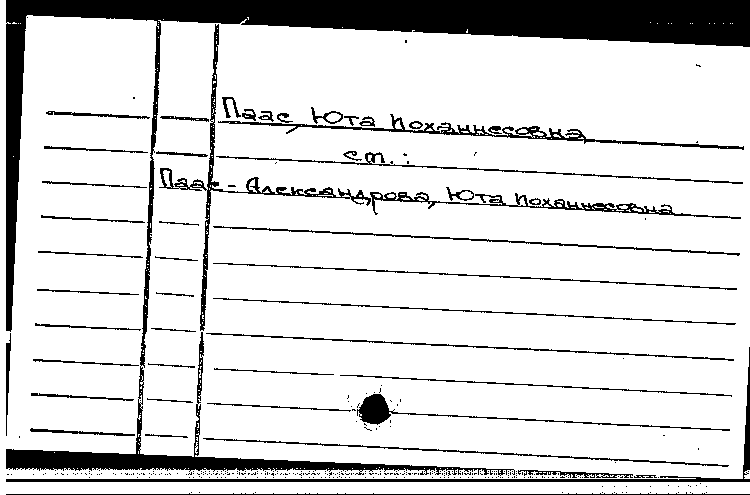 Паас, Юта Йоханнесовна
см.:
Паас-Александрова, Юта Йоханнесовна